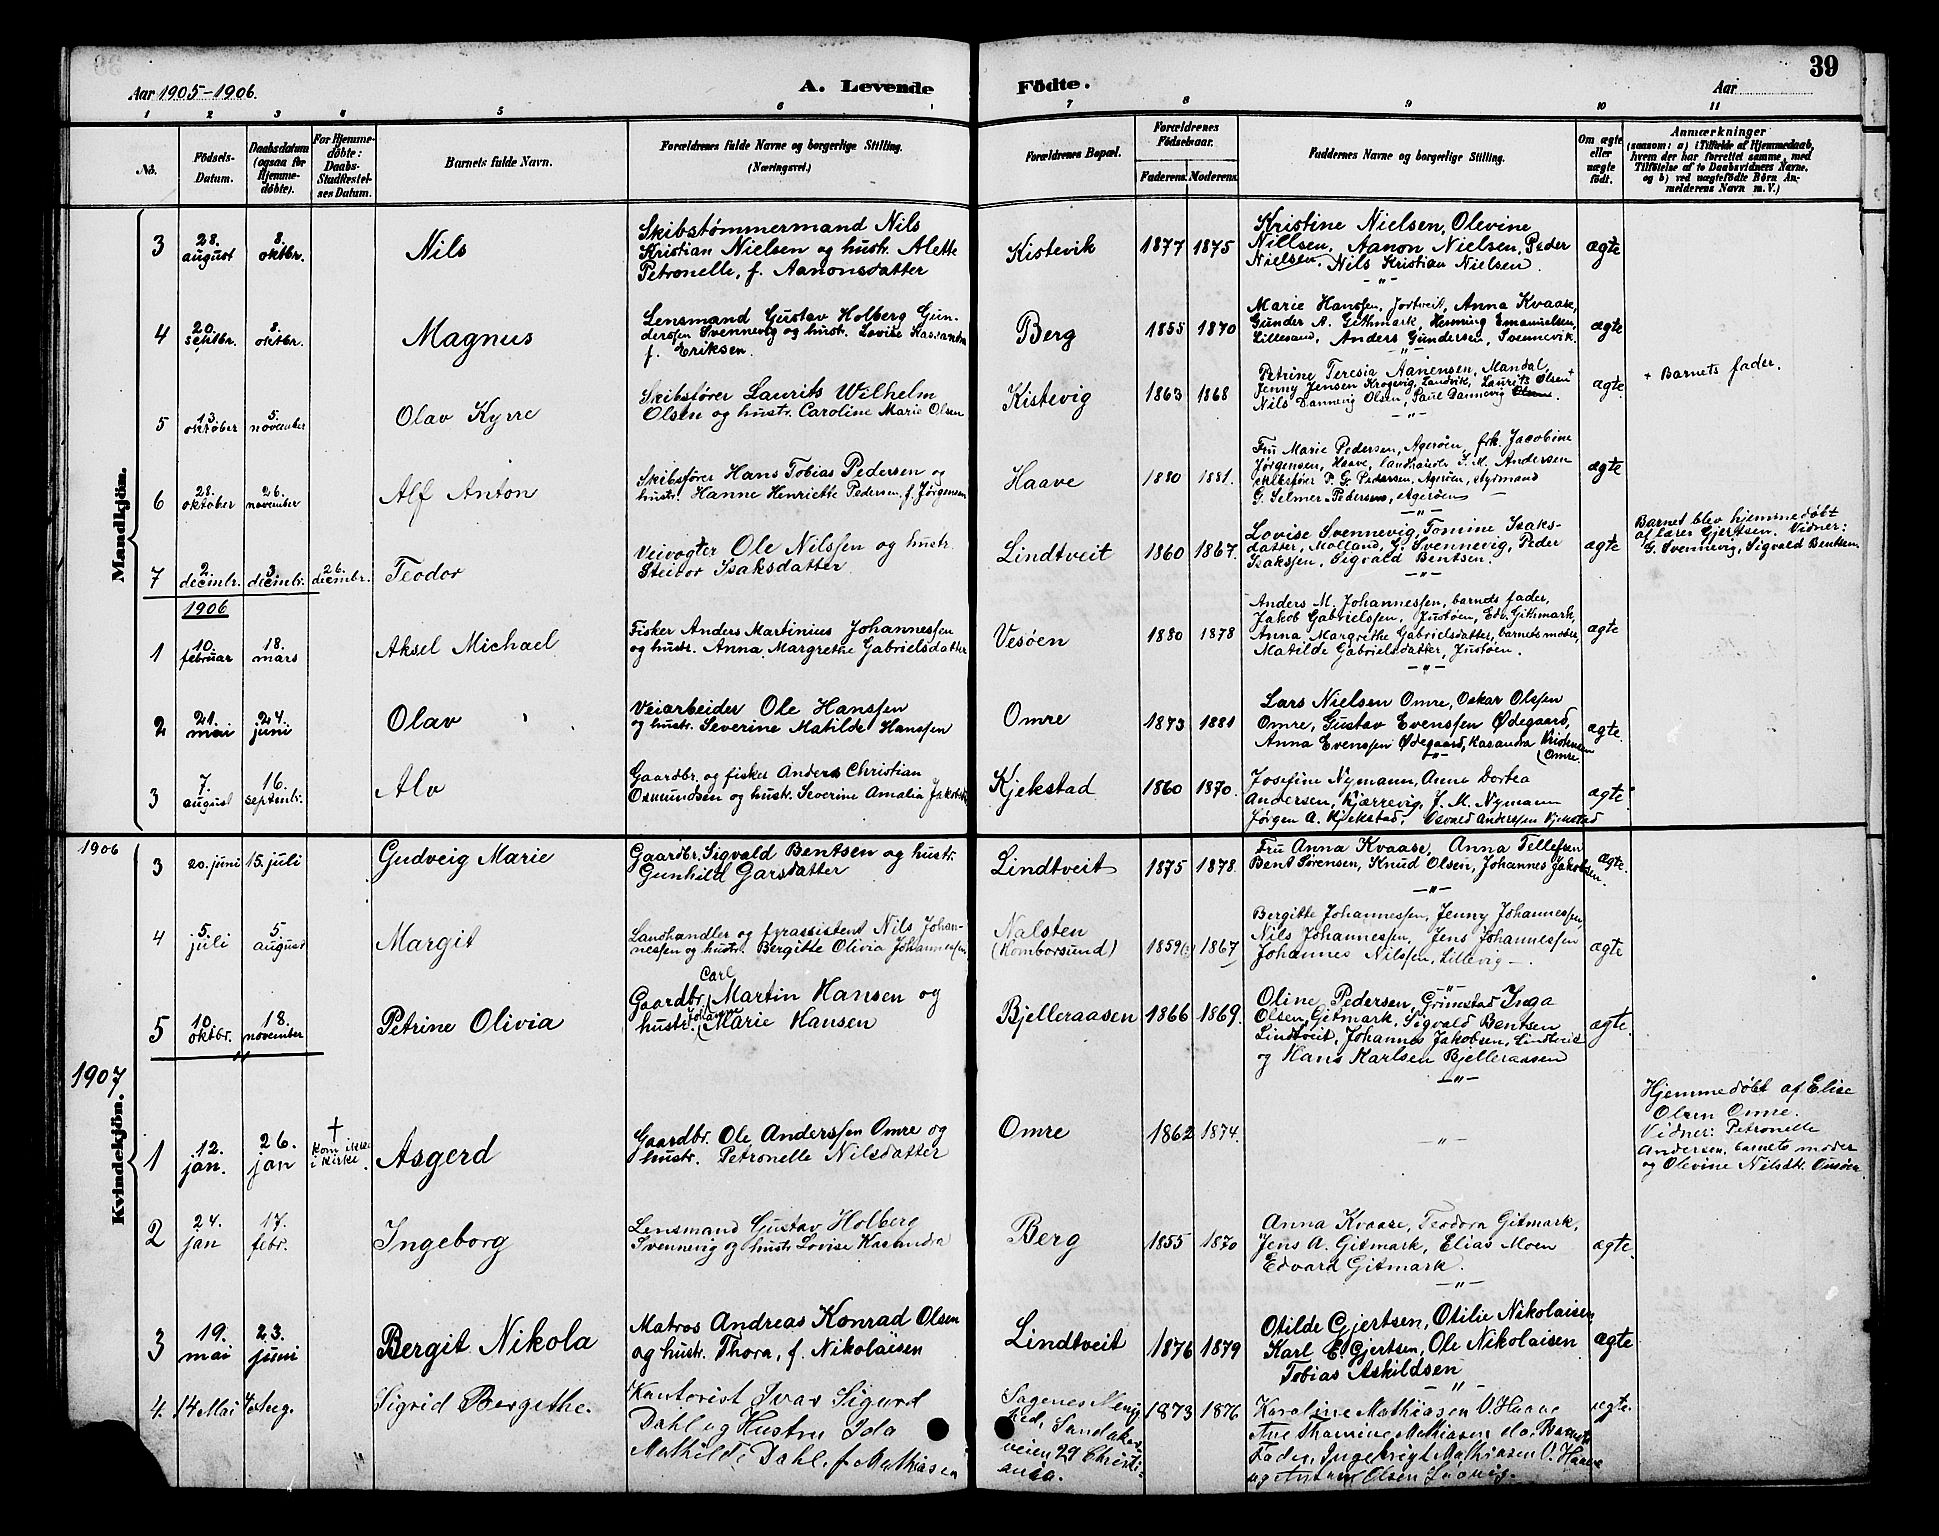 Aar 1905-1906.
A. Levende
Födte.
Aar
39
1 2 3 4 5 6 7 8 9 10 11
No.
Födsels-
Datum.
Daabsdatum
(ogsaa for
Hjemme-
døbte).
For Hjemme-
døbte:
Daabs
Stadfæstel-
ses Datum.
Barnets fulde Navn.
Forældrenes fulde Navne og borgerlige Stilling.
(Næringsvei.)
Forældrenes Bopæl.
Forældrenes
Födselsaar.
Faderens. Moderens.
Faddernes Navne og borgerlige Stilling.
Om ægte
eller
uægte
født.
Anmærkninger
(saasom: a) i Tilfælde af Hjemmedaab,
hvem der har forrettet samme, med
Tilföielse af to Daabsvidners Navne,
og b) ved uægtefødte Börn An-
melderens Navn m. V.)
Mandkjön.
3
28.
august
8.
oktbr.
Nils
Skibstømmermand Nils
Kristian Nielsen og hustr. Alette
Petronelle, f. Aanonsdatter
Kistevik
1877
1875
Kristine Nielsen, Olevine
Nielsen, Aanon Nielsen, Peder
Nielsen, Nils Kristian Nielsen.
ægte
4
20.
septbr.
8.
oktbr.
Magnus
Lensmand Gustav Holberg Gun-
derssen Svennevig og hustr. Lovise Kassandra
f. Eriksen.
Berg
1855
1870
Marie Hanssen, Jortveit, Anna Kvaase,
Gunder A. Githmark, Henning Emanuelsen,
Lillesand, Anders Gundersen, Svennevik.
ægte
5
13.
oktober
5.
november
Olav Kyrre
Skibsfører Laurits Wilhelm
Olsen og hustr. Caroline Marie Olsen
Kistevig
1863
1868
Petrine Teresia Aanensen, Mandal,
Jenny Jensen Krogevig, Landvik, Laurits Olsen +
Nils Dannevig Olsen, Paul Dannevig Olsen.
ægte
+ Barnets fader.
6
28.
oktober
26.
november
Alf Anton
Skibsfører Hans Tobias Pedersen og
hustr. Hanne Henriette Pedersen, f. Jørgensen
Haave
1880
1881.
Fru Marie Pedersen, Agerøen, frk. Jacobine
Jørgensen, Haave, landhandler J. M. Andersen
skibsfører P. G. Pedersen, Agerøen, styrmand
G. Selmer Pedersen, Agerøen
ægte
7
2.
decmbr.
3.
decmbr.
26.
decmbr.
Teodor
Veivogter Ole Nilssen og hustr.
Steivor Isaksdatter
Lindtveit
1860
1867.
Lovise Svennevig, Tomine Isaks-
datter, Molland, G. Svennevig, Peder
Isakssen, Sigvald Bentsen.
ægte
Barnet blev hjemmedøbt
af lærer Gjertsen. Vidner:
G. Svennevig, Sigvald Bentsen
1906
1
10.
februar
18.
mars
Aksel Michael
Fisker Anders Martinius Johannessen
og hustr. Anna Margrethe Gabrielsdatter
Vesøen
1880
1878
Anders M. Johannessen, barnets fader,
Jakob Gabrielssen, Justøen, Edv. Githmark,
Anna Margrethe Gabrielsdatter, barnets moder,
Matilde Gabrielsdatter, Justøen.
ægte
2
21.
mai
24.
juni
Olav
Veiarbeider Ole Hanssen
og hustr. Severine Matilde Hanssen
Omre
1873
1881
Lars Nielsen Omre, Oskar Olssen
Omre, Gustav Evenssen Ødegaard,
Anna Evenssen Ødegaard, Kasandra Kristensen
(Omre
ægte.
3
7.
august
16.
septembr.
Alv
Gaardbr. og fisker Anders Christian
Osmundsen og hustr. Severine Amalia Jakobsd.
Kjekstad
1860
1870.
Josefine Nymann, Anne Dortea
Andersen, Kjærrevig, J. M. Nymann
Jørgen A. Kjekstad, Osvald Anderssen Kjekstad
ægte
Kvindekjön.
1906
3
20. juni
15. juli
Gudveig Marie
Gaardbr. Sigvald Bentsen og hustr.
Gunhild Garsdatter
Lindtveit
1875
1878.
Fru Anna Kvaase, Anna Tellefsen
Bent Sørensen, Knud Olsen, Johannes Jakobsen.
ægte.
4
5
juli
5.
august
Margit
Landhandler og fyrassistent Nils Johan-
nessen og hustr. Bergitte Olivia Johannessen
Nalsten
(Homborsund)
1859
1867
Bergitte Johannessen, Jenny Johannessen,
Nils Johannessen, Jens Johannessen
Johannes Nilssen, Lillevig
ægte
5
10.
oktbr.
18.
november
Petrine Olivia
Carl
Gaardbr. Martin Hansen og
Johanne
hustr. Marie Hansen
Bjelleraasen
1866
1869.
Oline Pedersen, Grimstad Inga
Olsen, Gitmark, Sigvald Bentsen
Lindtveit, Johannes Jakobsen, Lindtveit
og Hans Karlsen Bjelleraasen
ægte.
1907
1
12.
jan.
26.
jan
†
Kom ikke
i kirke
Asgerd
Gaardbr. Ole Anderssen Omre og
hustr. Petronelle Nilsdatter
Omre
1862
1874.
ægte.
Hjemmedøbt af Elise
Olsen Omre.
Vidner: Petronelle
Andersen, barnets moder
og Olevine Nilsdtr.
2
24.
jan
17.
febr.
Ingeborg
Lensmand Gustav Holberg
Svennevig og hustr. Lovise Kasandra
Berg
1855
1870
Anna Kvaase, Teodora Gitmark,
Jens A. Gitmark, Elias Moen
Edvard Gitmark.
ægte.
3
19.
mai
23.
juni
Bergit Nikola
Matros Andreas Konrad Olsen
og hustr. Thora, f. Nikolaisen
Lindtveit
1876
1879
Otilde Gjertsen, Otilie Nikolaisen
Karl E. Gjertsen, Ole Nikolaisen
Tobias Askildsen
ægte
4.
14 Mai
4 Aug.
Sigrid Bergithe.
Kontorist Ivar Sigurd
Dahl og Hustru Ida
Mathilde Dahl, f. Mathiasen
Sagenes Menig
hed, Sandaker
veien 29 Christi-
ania.
1873
1876
Karoline Mathiasen V. Haave
Ane Thamine Mathiasen do. Barnets
Fader, Ingebrigt Mathiasen V. Haave
og Olsen
ægte.